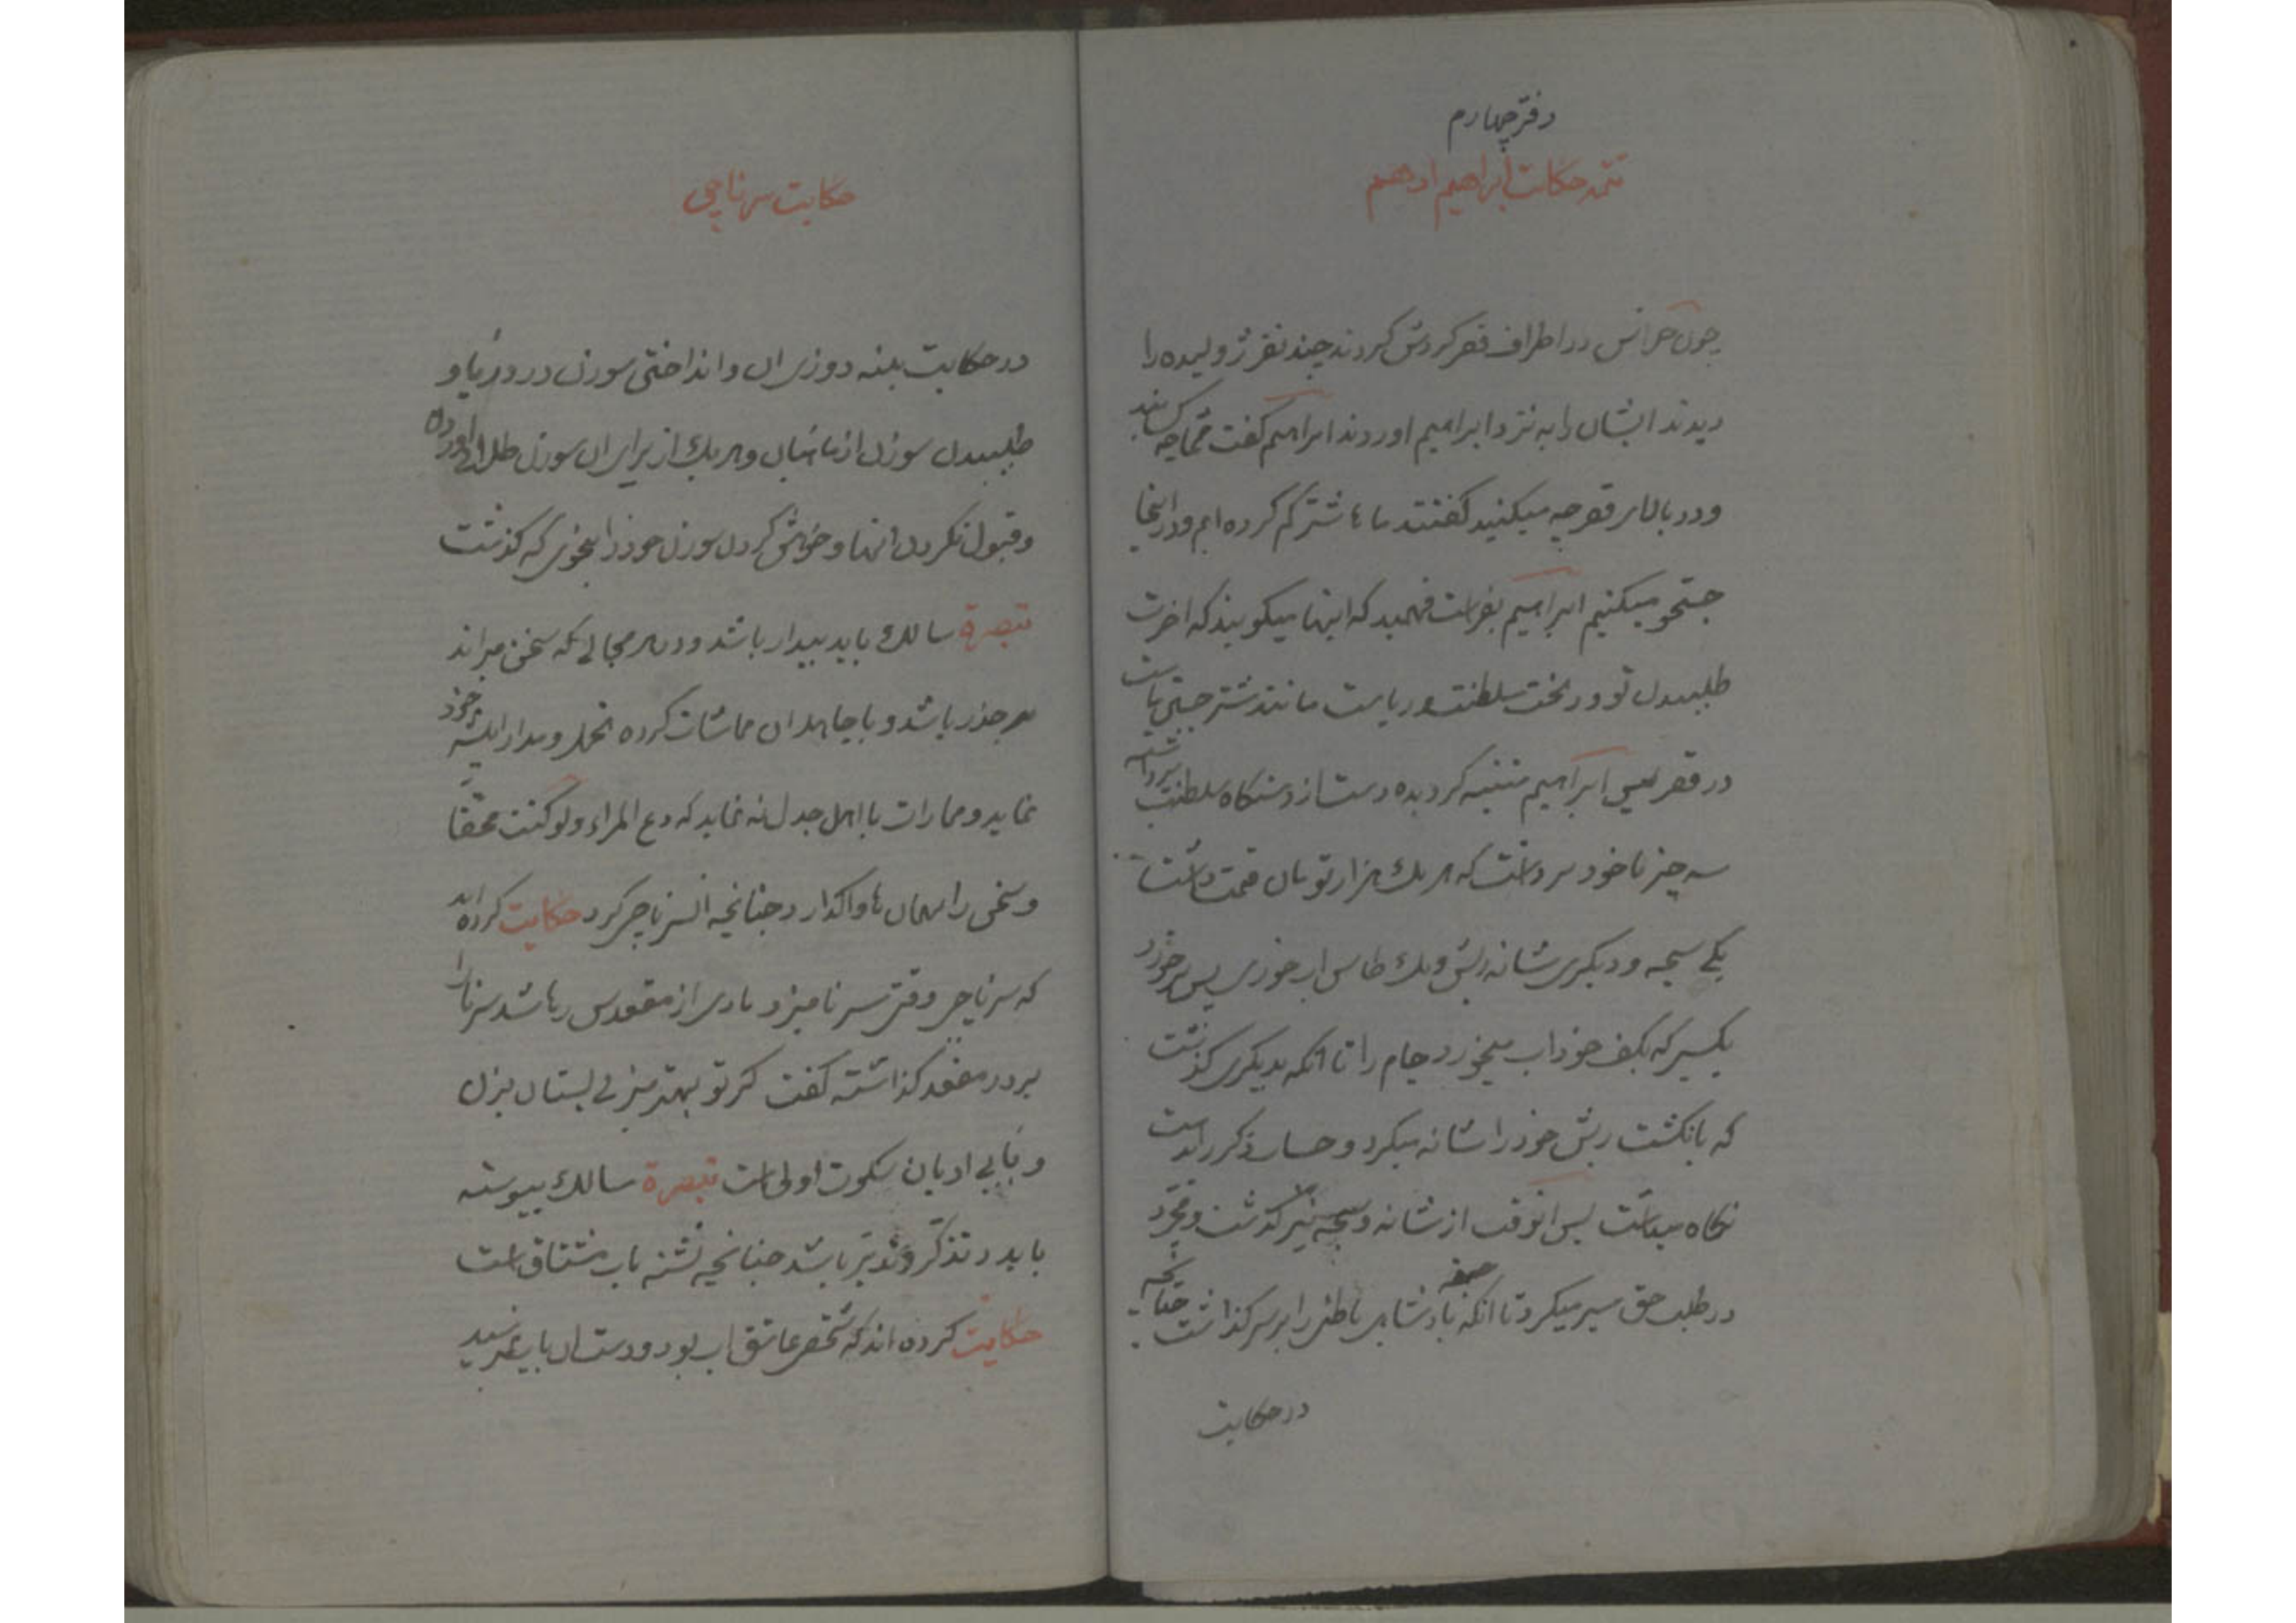 دفتر چهارم
تتمه حکایت ابراهیم ادهم
چون حراس در اطراف قصر کردش کردند چند نفر ژولیده را
دیدند ایشان را به نزد ابراهیم اوردند ابراهیم کفت شما چه کسانید
و در بالای قصر چه میکنید کفتند ما ها شتر کم کرده ایم و در اینجا
جستجو میکنیم ابراهیم بفراست فهمید که اینها میکویند که اخرت
طلبیدن تو در تخت سلطنت و ریاست مانند شتر جستن ماست
در قصر پس ابراهیم متنبه کردیده دست از دستکاه سلطنت برداشته
سه چیز با خود برداشت که هر یک هزار تومان قیمت داشت
یکی سبحه و دیکری شانه ریش و یک طاس اب خوری پس برخورد
بکسی که بکف خود اب میخورد جام را تا انکه بدیکری کذشت
که بانکشت ریش خود را شانه میکرد و حساب ذکر را بدست
نکاه میداشت پس انوقت از شانه و سبحه نیز کذشت و مجرد
در طلب حق سیر میکرد تا انکه پادشاهی باطنی را بر سر کذاشت چنانچه
در حکایت
حکایت سرناچی
در حکایت پینه دوزی ان و انداختن سوزن در دریا و
طلبیدن سوزن از ماهیان و هر یک از برای ان سوزن طلا اوردن
و قبول نکردن انها و خواهش کردن سوزن خود را بنحوی که کذشت
تبصرة سالک باید بیدار باشد و در هر مجالی که سخن میراند
بر حذر باشد و با جاهلان مماشات کرده تحمل و مدارا پیشه خود
نماید و ممارات با اهل جدل نه نماید که دع المراء ولو کنت محقا
و سخن را بهمان ها واکذارد چنانچه ان سرناچی کرد حکایت کرده‌اند
که سرناچی وقتی سرنا میزد بادی از مقعدش رها شد سرنا را
بر در مقعد کذاشته کفت کر تو بهتر میزنی بستان بزن
و با بی ادبان سکوت اولی است تبصرة سالک پیوسته
باید در تذکر و تدبر باشد چنانچه تشنه باب مشتاق است
حکایت کرده اند که شخصی عاشق اب بود و دست ان باب نمیرسید